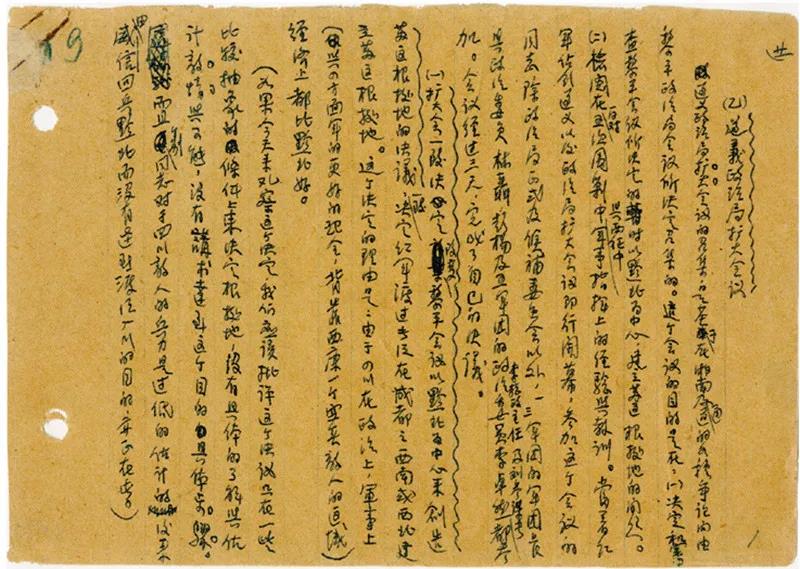 廿
(乙)遵義政治局扩大会议
遵义政治局扩大会议的召集,是基于在湘南及通道的各种争论而由
黎平政治局会议所决定召集的。这个会议的目的是在:(一)决定和审
查黎平会议所决定的暂时以黔北为中心,建立苏区根据地的问题。
(二)检阅在反对五次围剿中与西征中军事指挥上的经验与教训。当着红
军佔领遵义以后,政治局扩大会议即行开幕,参加这个会议的
同志除政治局正式及候補委员会以外,一三军团的军团长
与政治委员林聶彭楊及五军团的政治委员李卓然李总政主任及刘参谋长都参
加。会议经过三天,完成了自己的决議。
(一)扩大会一致决定改变黎平会议以黔北为中心来创造
苏区根据地的决議,一致决定红军渡过长江在成都之西南或西北建
立苏区根据地。这个决定的理由是:由于四川在政治上,军事上
(与四方面军的更好的配合,背靠西康一个空无敌人的区域)
经济上都比黔北好。
(如果今天来观察这个决定,我们应该批评这个决议只在一些
比较抽象的条件上来决定根据地,没有具体的了解与估
计敌情与可能,没有講求达到这个目的的具体步骤。
而且个别同志对于四川敌人的兵力是过低的估计的,后来由
威信回兵黔北而没有达到渡江入川的目的,亦正在此。)
19
1